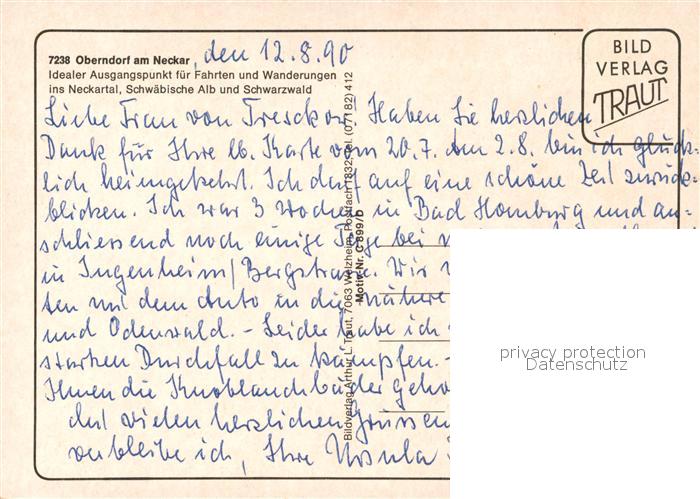 7238 Oberndorf am Neckar, den 12.8.90
Idealer Ausgangspunkt für Fahrten und Wanderungen
ins Neckartal, Schwäbische Alb und Schwarzwald
BILD
VERLAG
TRAUT
Liebe Frau von Tresckow! Haben Sie herzlichen
Dank für Ihre lb. Karte vom 20.7. Am 2.8. bin ich glück-
lich heimgekehrt. Ich darf auf eine schöne Zeit zurück-
blicken. Ich war 3 Wochen in Bad Homburg und an-
schliessend noch einige Tage bei
in Jugenheim/Bergstrasse. Wir
ten mit dem Auto in die nähere
und Odenwald. - Leider habe ich
starken Durchfall zu kämpfen. -
Ihnen die Knoblauchbäder
Mit vielen herzlichen Grüssen
verbleibe ich, Ihre Ursula
Bildverlag Arthur L. Traut, 7063 Welzheim, Postfach 1832, Tel. (07182) 412
Motiv-Nr. C 899/D
privacy protection
Datenschutz